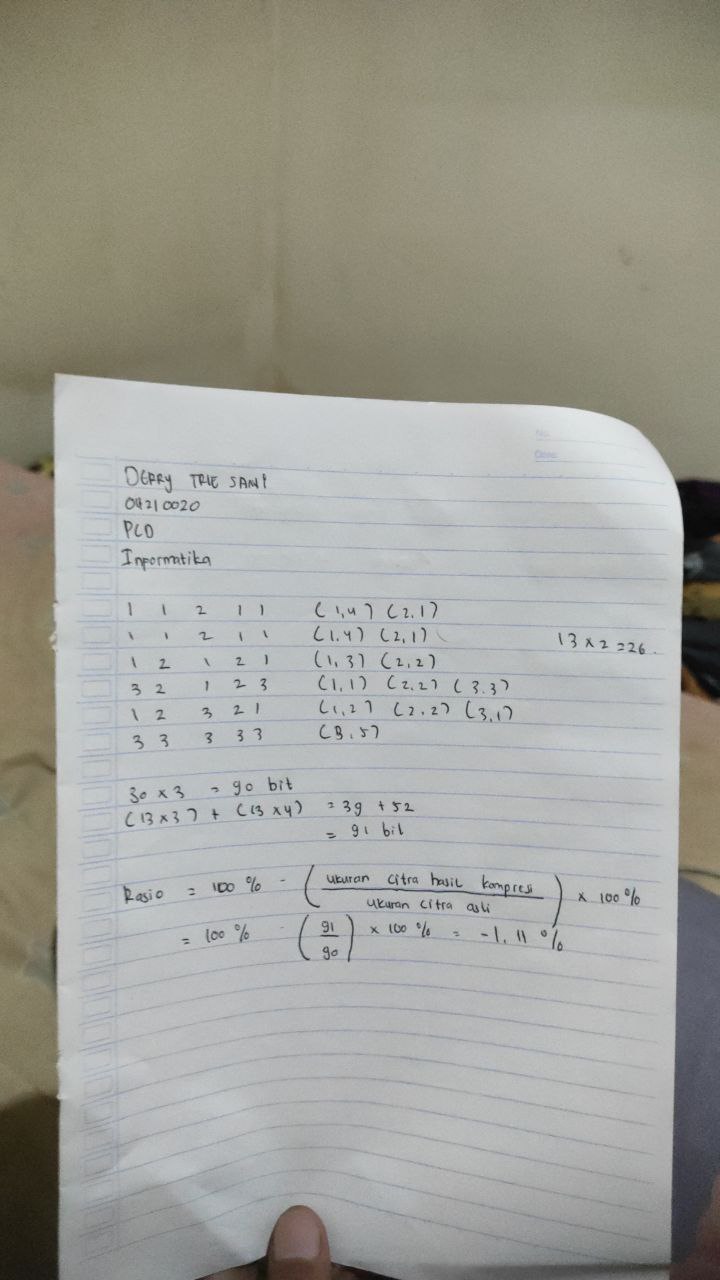 No.
Date
DERRY TRIE SANI
04210020
PCD
Inpormatika
1 1 2 1 1 (1,4) (2,1)
1 1 2 1 1 (1,4) (2,1) 13 x 2 = 26.
1 2 1 2 1 (1,3) (2,2)
3 2 1 2 3 (1,1) (2,2) (3,3)
1 2 3 2 1 (1,2) (2,2) (3,1)
3 3 3 3 3 (3,5)
30 x 3 = 90 bit
(13 x 3) + (13 x 4) = 39 + 52
= 91 bit
Rasio = 100 % - (ukuran citra hasil kompresi / ukuran citra asli) x 100 %
= 100 % - (91 / 90) x 100 % = -1,11 %